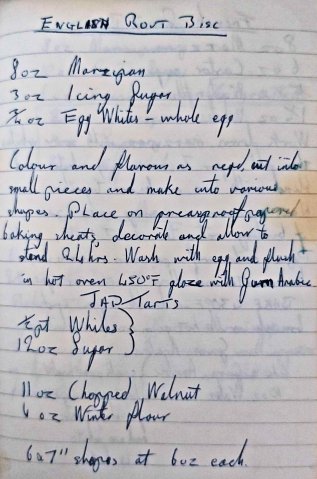 ENGLISH ROUT BISC
8oz Marzipan
3oz Icing Sugar
oz Egg Whites - whole egg
Colour and flavour as reqd, cut into
small pieces and make into various
shapes. Place on greaseproof papered
baking sheets, decorate and allow to
stand 24hrs. Wash with egg and flush
in hot oven 450°F glaze with Gum Arabic
JAP Tarts
½pt Whites }
12oz Sugar }
11oz Chopped Walnut
oz Winter flour
6 or 7" shapes at 6oz each.